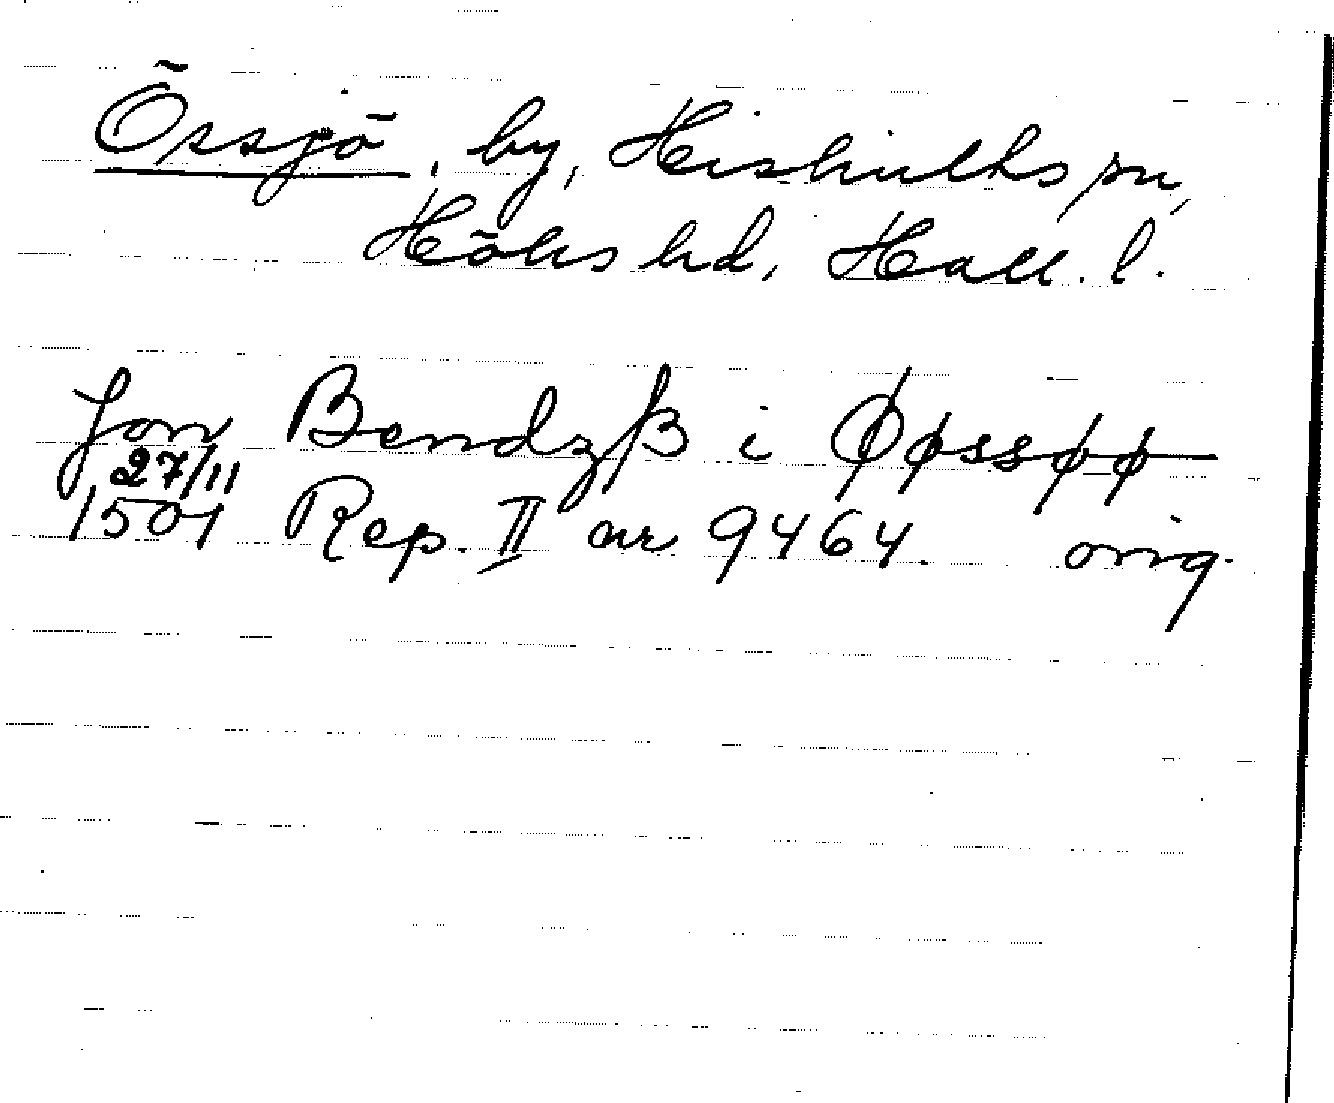 Össjö, by, Hishults sn,
Höks hd, Hall. l.
Jon Bendzß i Øøssøø
27/11
1501 Rep. II nr 9464. orig.